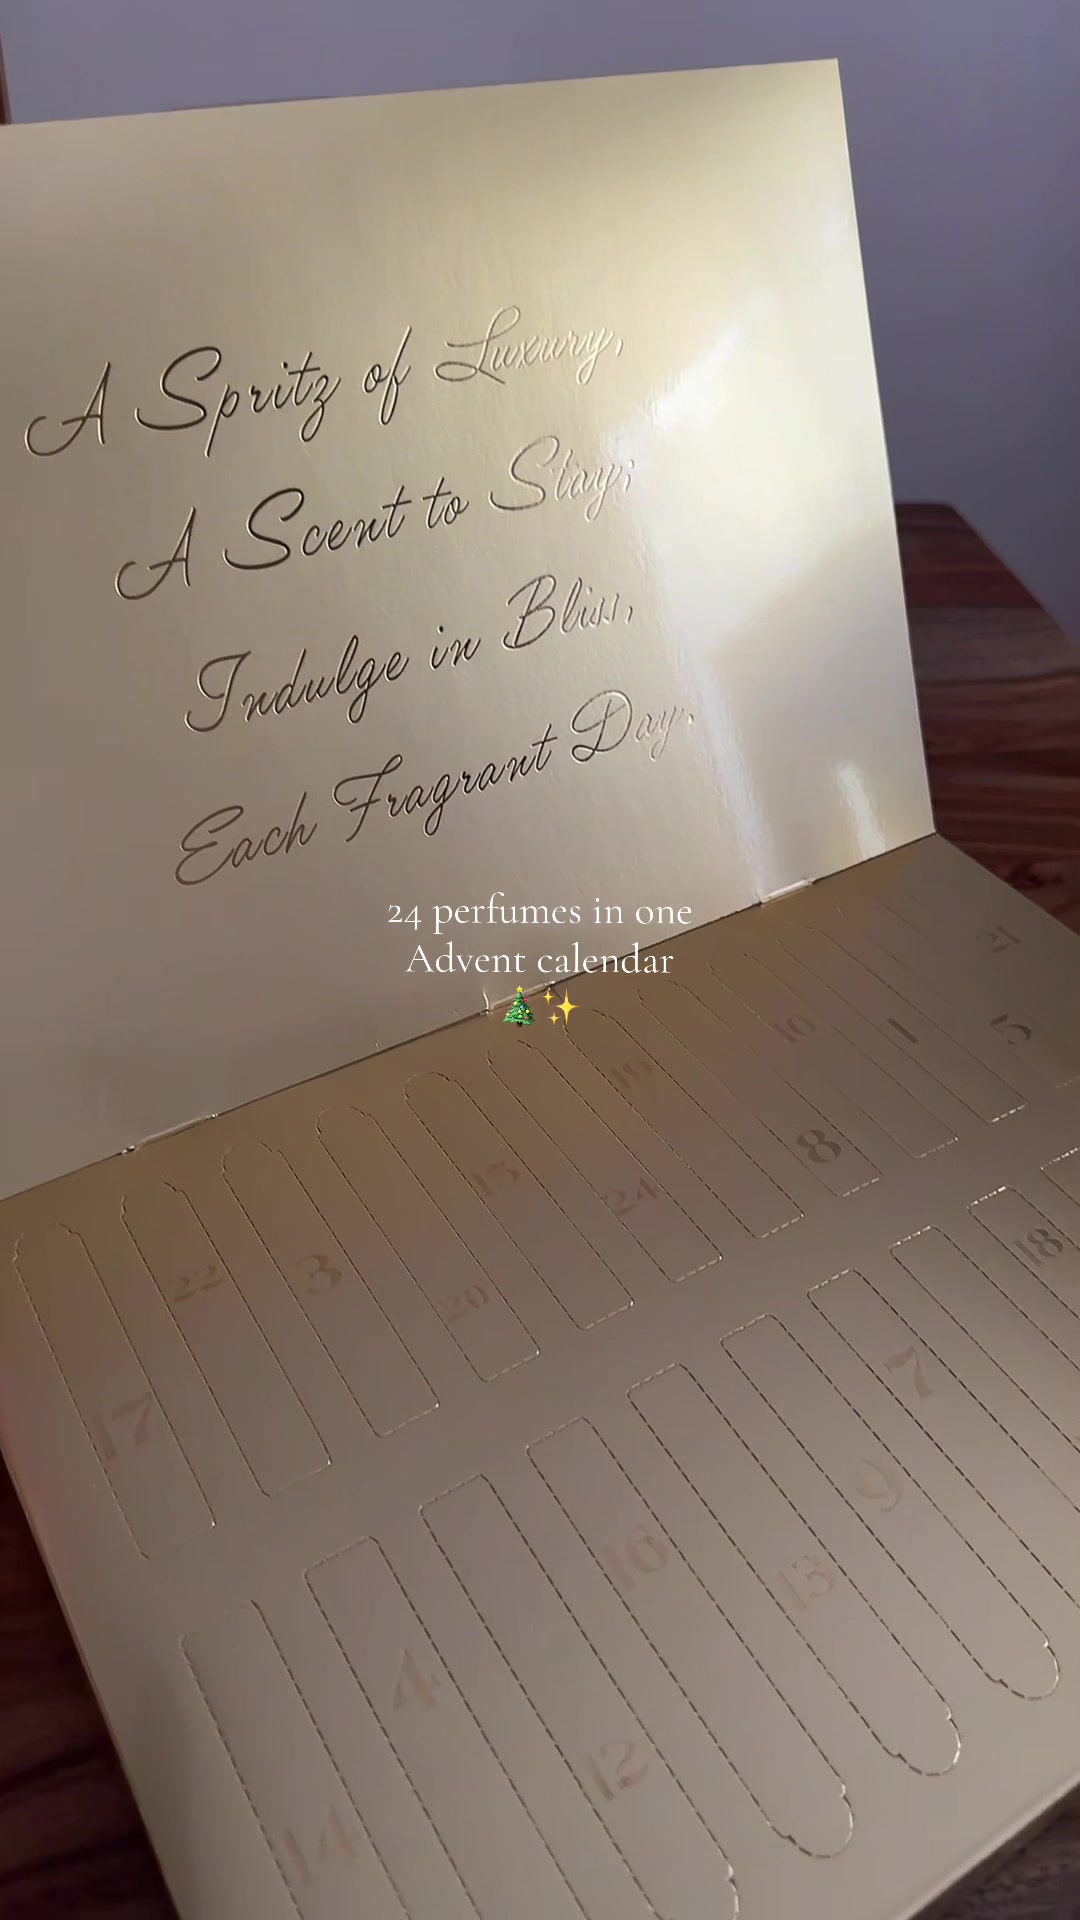 A Spritz of Luxury,
A Scent to Stay;
Indulge in Bliss,
Each Fragrant Day.
24 perfumes in one
Advent calendar
🎄✨
21
10
1
5
19
8
15
24
22
3
20
17
18
7
9
16
13
4
12
14